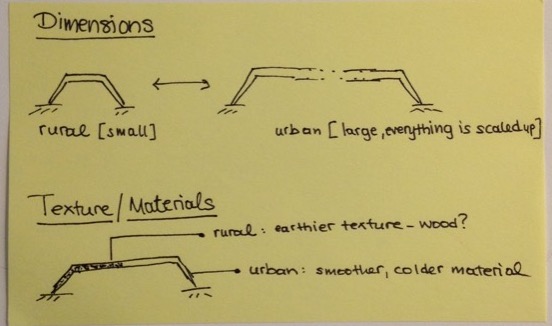 Dimensions
rural [small]
urban [large, everything is scaled up]
Texture/Materials
rural: earthier texture - wood?
urban: smoother, colder material